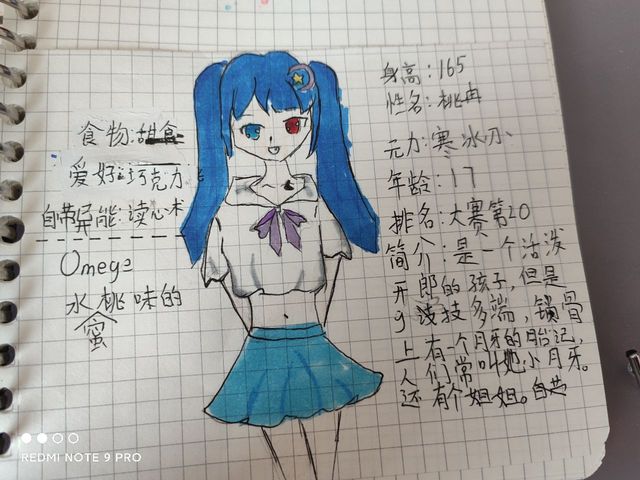 食物:甜食
爱好:巧克力
自带异能:读心术
Omega
水桃味的
蜜
身高:165
性名:桃冉
元力:寒冰刃
年龄:17
排名:大赛第20
简介:是一个活泼
开郎的孩子,但是
技多端,锁骨
上有一个月牙的胎记,
人们常叫她小月牙。
还有个姐姐。自带
REDMI NOTE 9 PRO